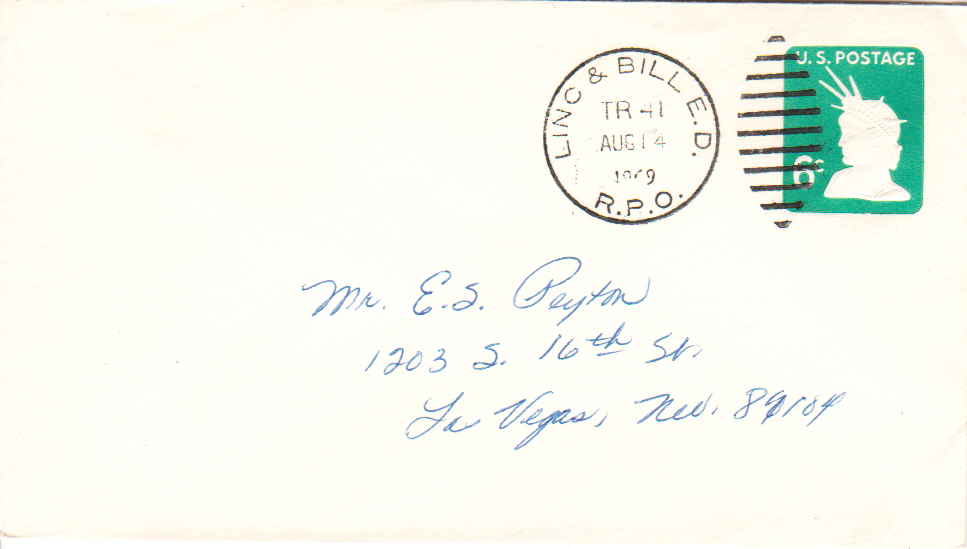 LINC & BILL E.D.
TR 41
AUG 14
1969
R.P.O.
U.S. POSTAGE
6c
Mr. E. S. Peyton
1203 S. 16th St.
Las Vegas, Nev. 89104